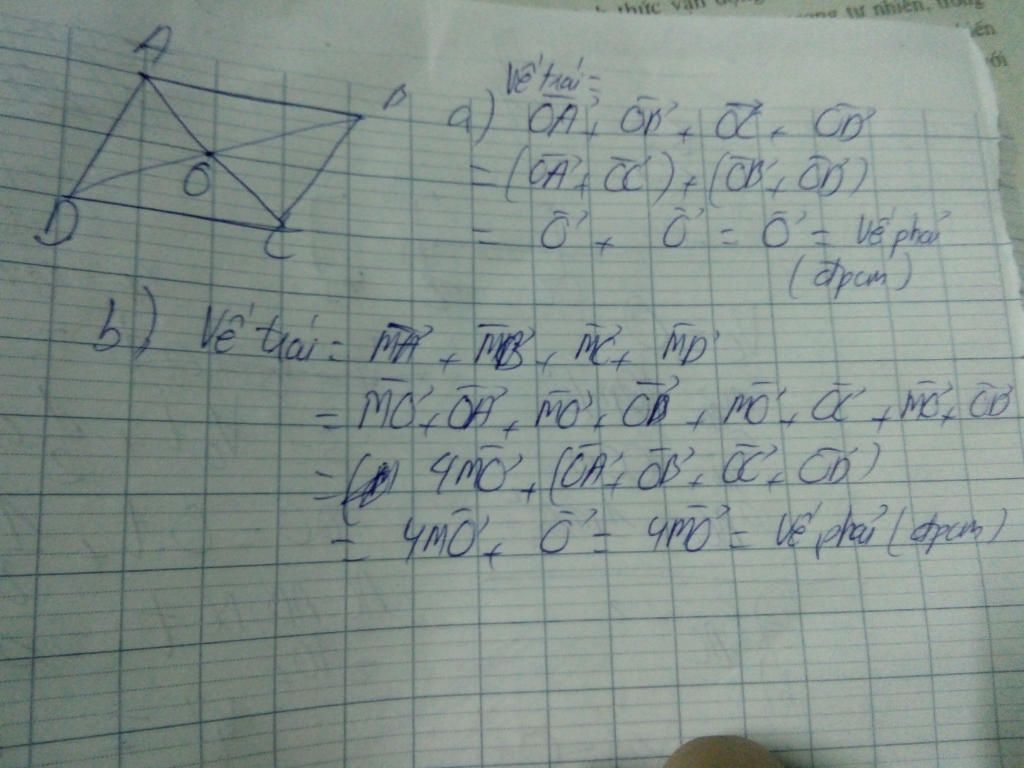 thức vận động
ong tự nhiên, trong
A
B
O
D
C
Vế trái =
a) OA⃗ + OB⃗ + OC⃗ + OD⃗
= (OA⃗ + OC⃗) + (OB⃗ + OD⃗)
= O⃗ + O⃗ = O⃗ = Vế phải
(đpcm)
b) Vế trái = MA⃗ + MB⃗ + MC⃗ + MD⃗
= MO⃗ + OA⃗ + MO⃗ + OB⃗ + MO⃗ + OC⃗ + MO⃗ + OD⃗
= 4MO⃗ + (OA⃗ + OB⃗ + OC⃗ + OD⃗)
= 4MO⃗ + O⃗ = 4MO⃗ = Vế phải (đpcm)